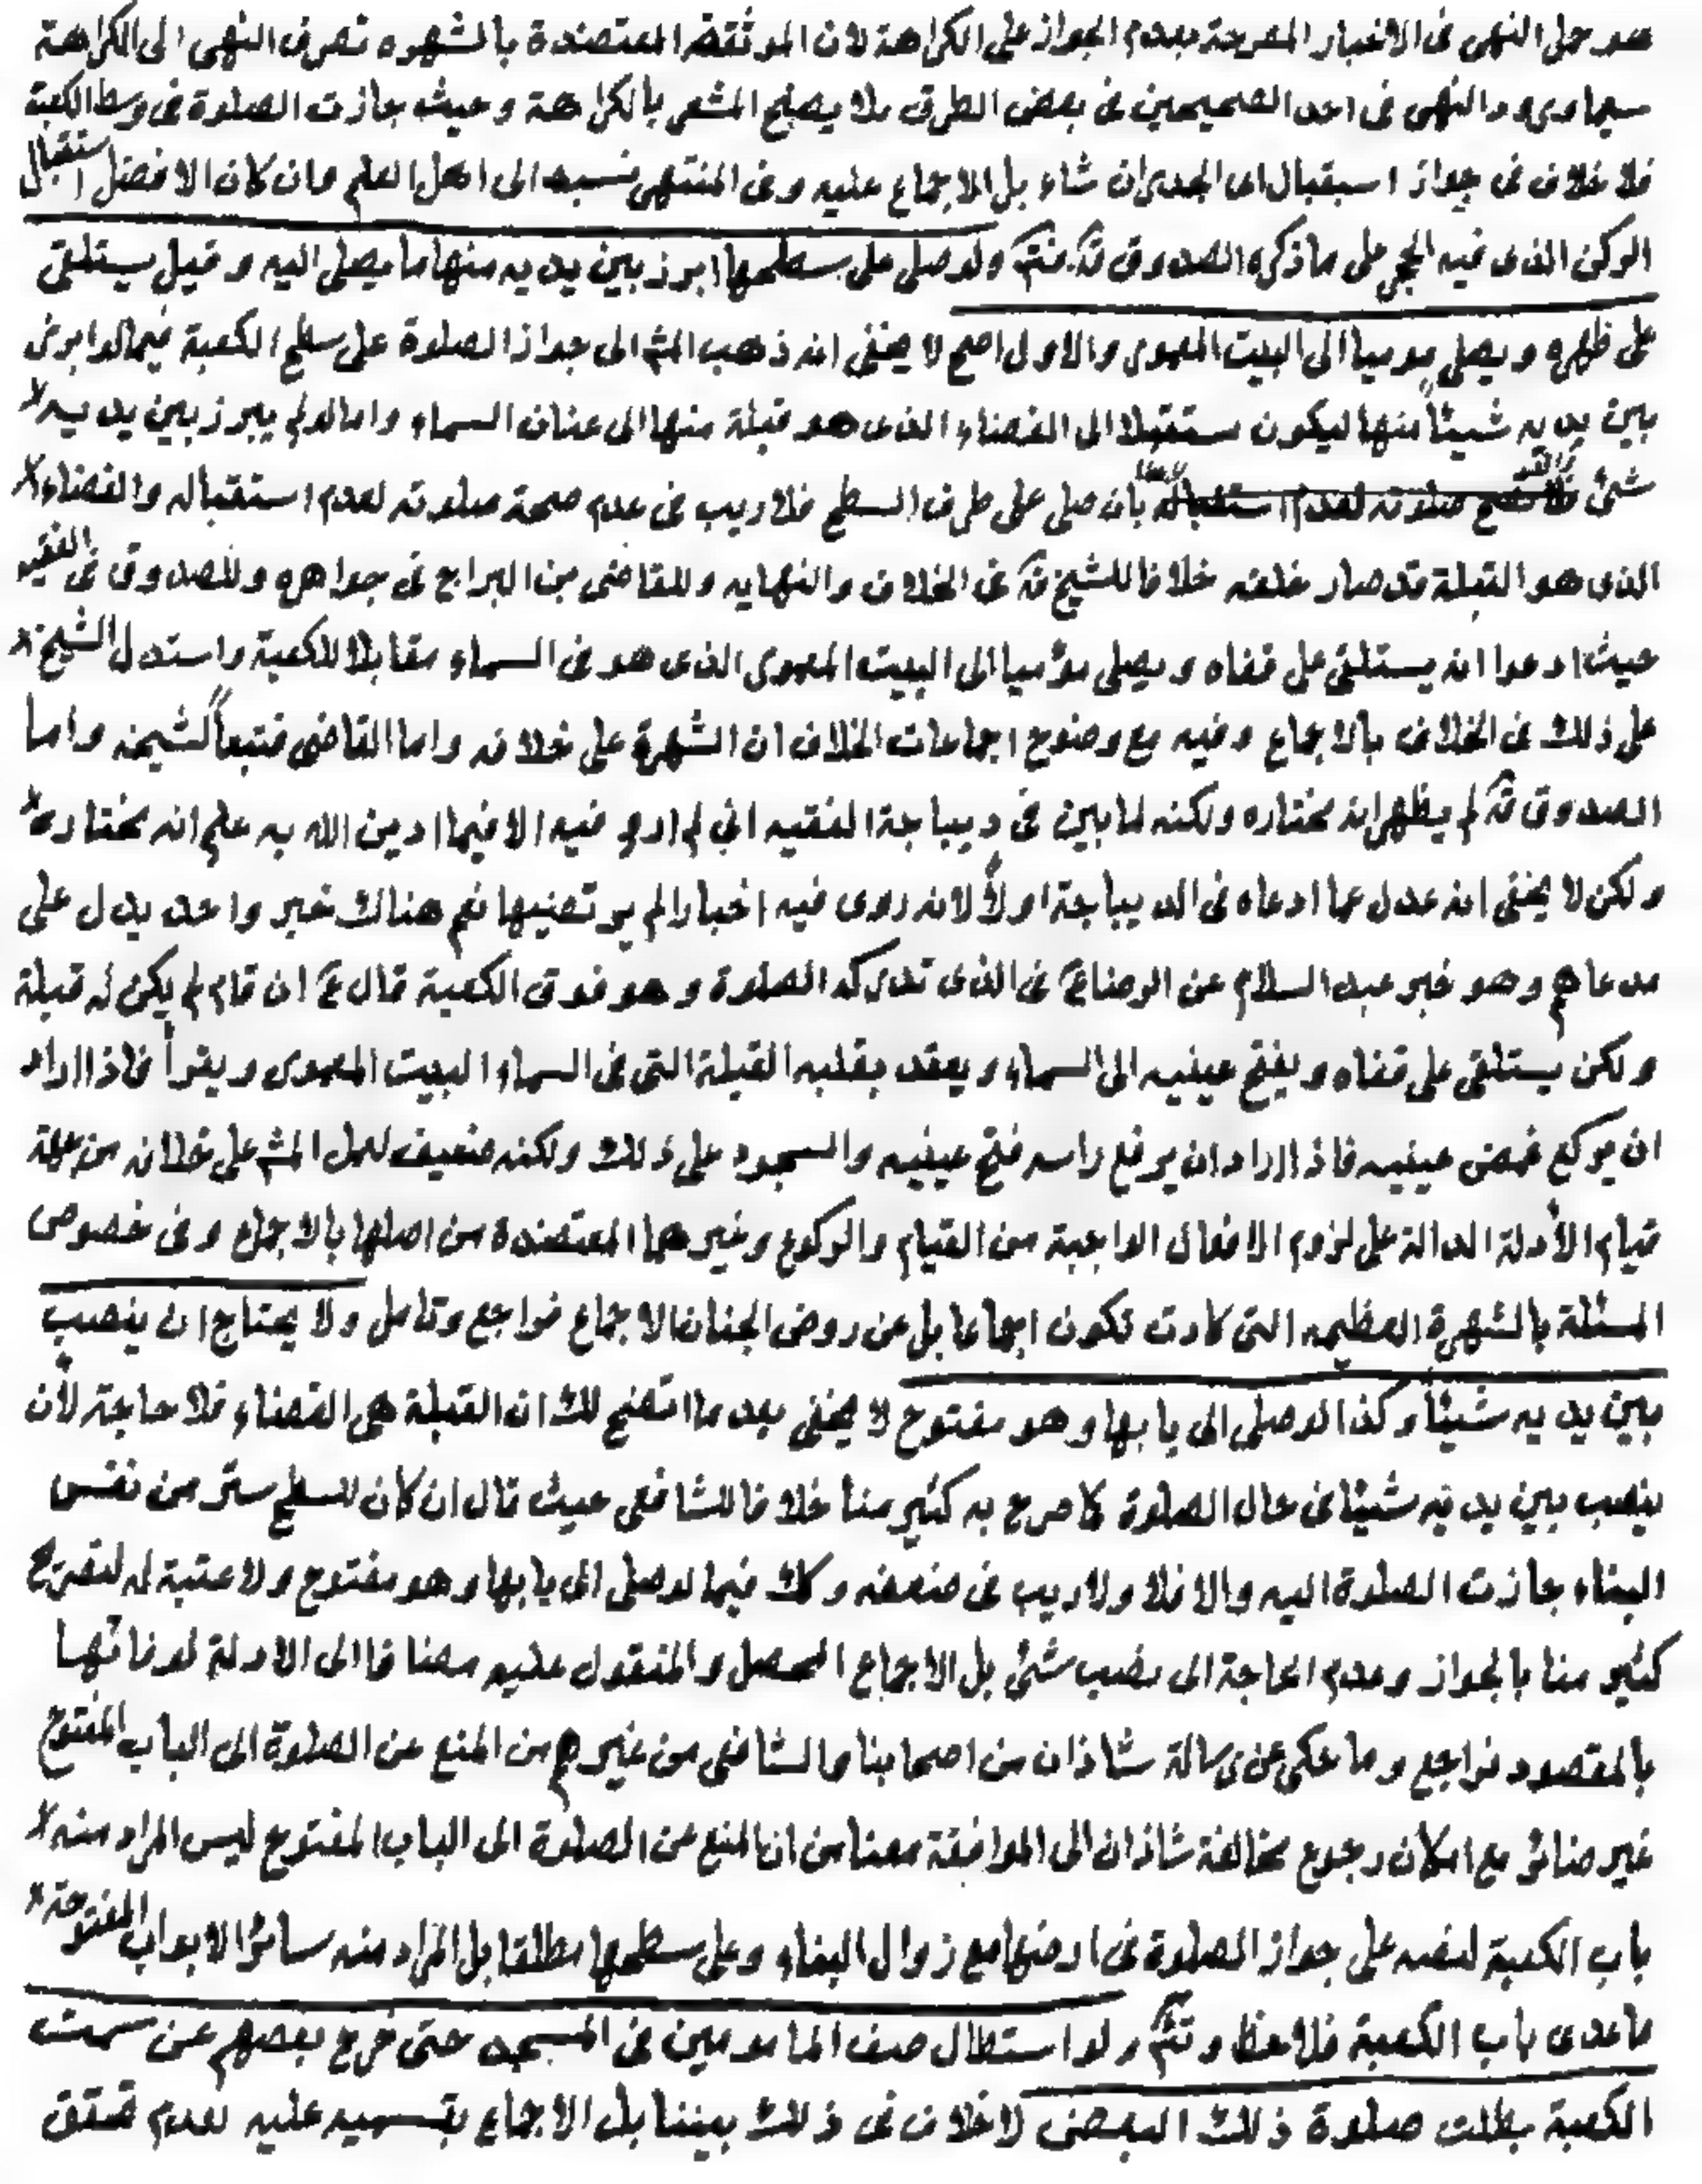 هو حمل النهى فى الاخبار المصرحة بعدم الجواز على الكراهة لان الموثقة المعتضدة بالشهره تصرف النهى الى الكراهة
سيما ورود النهى فى احد الصحيحين فى بعض الطرق بلا يصلح المشعر بالكراهة وحيث جازت الصلوة فى وسط الكعبة
فلا خلاف فى جواز استقبال اى الجدران شاء بل الاجماع عليه وفى المنتهى نسبه الى اهل العلم وان كان الافضل استقبال
الركن الذى فيه الحجر على ما ذكره الصدوق ولو صلى على سطحها ابرز بين يديه منها ما يصلى اليه وقيل يستلقى
على ظهره ويصلى موميا الى البيت المعمور والاول اصح لا يخفى انه ذهب المشه الى جواز الصلوة على سطح الكعبة فيما لو ابرز
بين يديه شيئاً منها ليكون مستقبلا الى الفضاء الذى هو قبلة منها الى عنان السماء واما لو لم يبرز بين يديه
شئ بان صلى على طرف السطح فلا ريب فى عدم صحة صلوته لعدم استقباله والفضاء
الذى هو القبلة قد صار خلفه خلافا للشيخ فى الخلاف والنهايه وللقاضى بن البراج فى جواهره وللصدوق فى الفقيه
حيث ادعوا انه يستلقى على قفاه ويصلى مؤميا الى البيت المعمور الذى هو فى السماء مقابلا للكعبة واستدل الشيخ
على ذلك فى الخلاف بالاجماع وفيه مع وضوح اجماعات الخلاف ان الشهرة على خلافه واما القاضى فتبعاً لشيخه واما
الصدوق لم يظهر انه مختاره ولكنه لما بين فى ديباجة الفقيه انى لم ارو فيه الا فيما ادين الله به علم انه مختاره
ولكن لا يخفى انه عدل عما ادعاه فى الديباجة اولاً لانه روى فيه اخبارا لم يرتضيها نعم هناك خبر واحد يدل على
مدعاهم وهو خبر عبد السلام عن الرضا ع فى الذى تدركه الصلوة وهو فوق الكعبة قال ع ان قام لم يكن له قبلة
ولكن يستلقى على قفاه ويفتح عينيه الى السماء ويعقد بقلبه القبلة التى فى السماء البيت المعمور ويقرأ فاذا اراد
ان يركع غمض عينيه فاذا اراد ان يرفع راسه فتح عينيه والسجود على ذلك ولكنه ضعيف لعمل المشه على خلافه من جملة
قيام الأدلة الدالة على لزوم الافعال الواجبة من القيام والركوع وغيرهما المعتضدة من اصلها بالاجماع وفى خصوص
المسئلة بالشهرة العظيمه التى كادت تكون اجماعا بل عن روض الجنان الاجماع فراجع وتامل ولا يحتاج ان ينصب
بين يديه شيئاً وكذا لو صلى الى بابها وهو مفتوح لا يخفى بعد ما اتضح لك ان القبلة هى الفضاء فلا حاجة لأن
ينصب بين يديه شيئا فى حال الصلوة كما صرح به كثير منا خلافا للشافعى حيث قال ان كان للسطح ستر من نفس
البناء جازت الصلوة اليه والا فلا ولا ريب فى ضعفه وكك فيما لو صلى الى بابها وهو مفتوح ولا عتبة له لتصريح
كثير منا بالجواز وعدم الحاجة الى نصب شئ بل الاجماع المحصل والمنقول عليه مضافا الى الادلة لوفائها
بالمقصود فراجع وما حكى عن رسالة شاذان من اصحابنا والشافعى من غيرهم من المنع عن الصلوة الى الباب المفتوح
غير ضائر مع امكان رجوع مخالفة شاذان الى الموافقة معنا من ان المنع عن الصلوة الى الباب المفتوح ليس المراد منه
باب الكعبة لنصه على جواز الصلوة فى ارضها مع زوال البناء وعلى سطحها مطلقا بل المراد منه سائر الابواب المفتوحة
ماعدى باب الكعبة فلاحظ ولو استطال صف المامومين فى المسجد حتى خرج بعضهم عن سمت
الكعبة بطلت صلوة ذلك البعض لا خلاف فى ذلك بيننا بل الاجماع بقسميه عليه لعدم تحقق